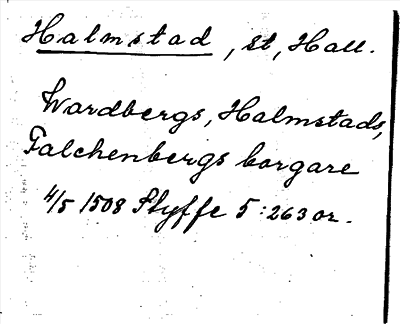 Halmstad, st, Hall.
Wardbergs, Halmstads,
Falchenbergs borgare
4/5 1508 Styffe 5:263 or.